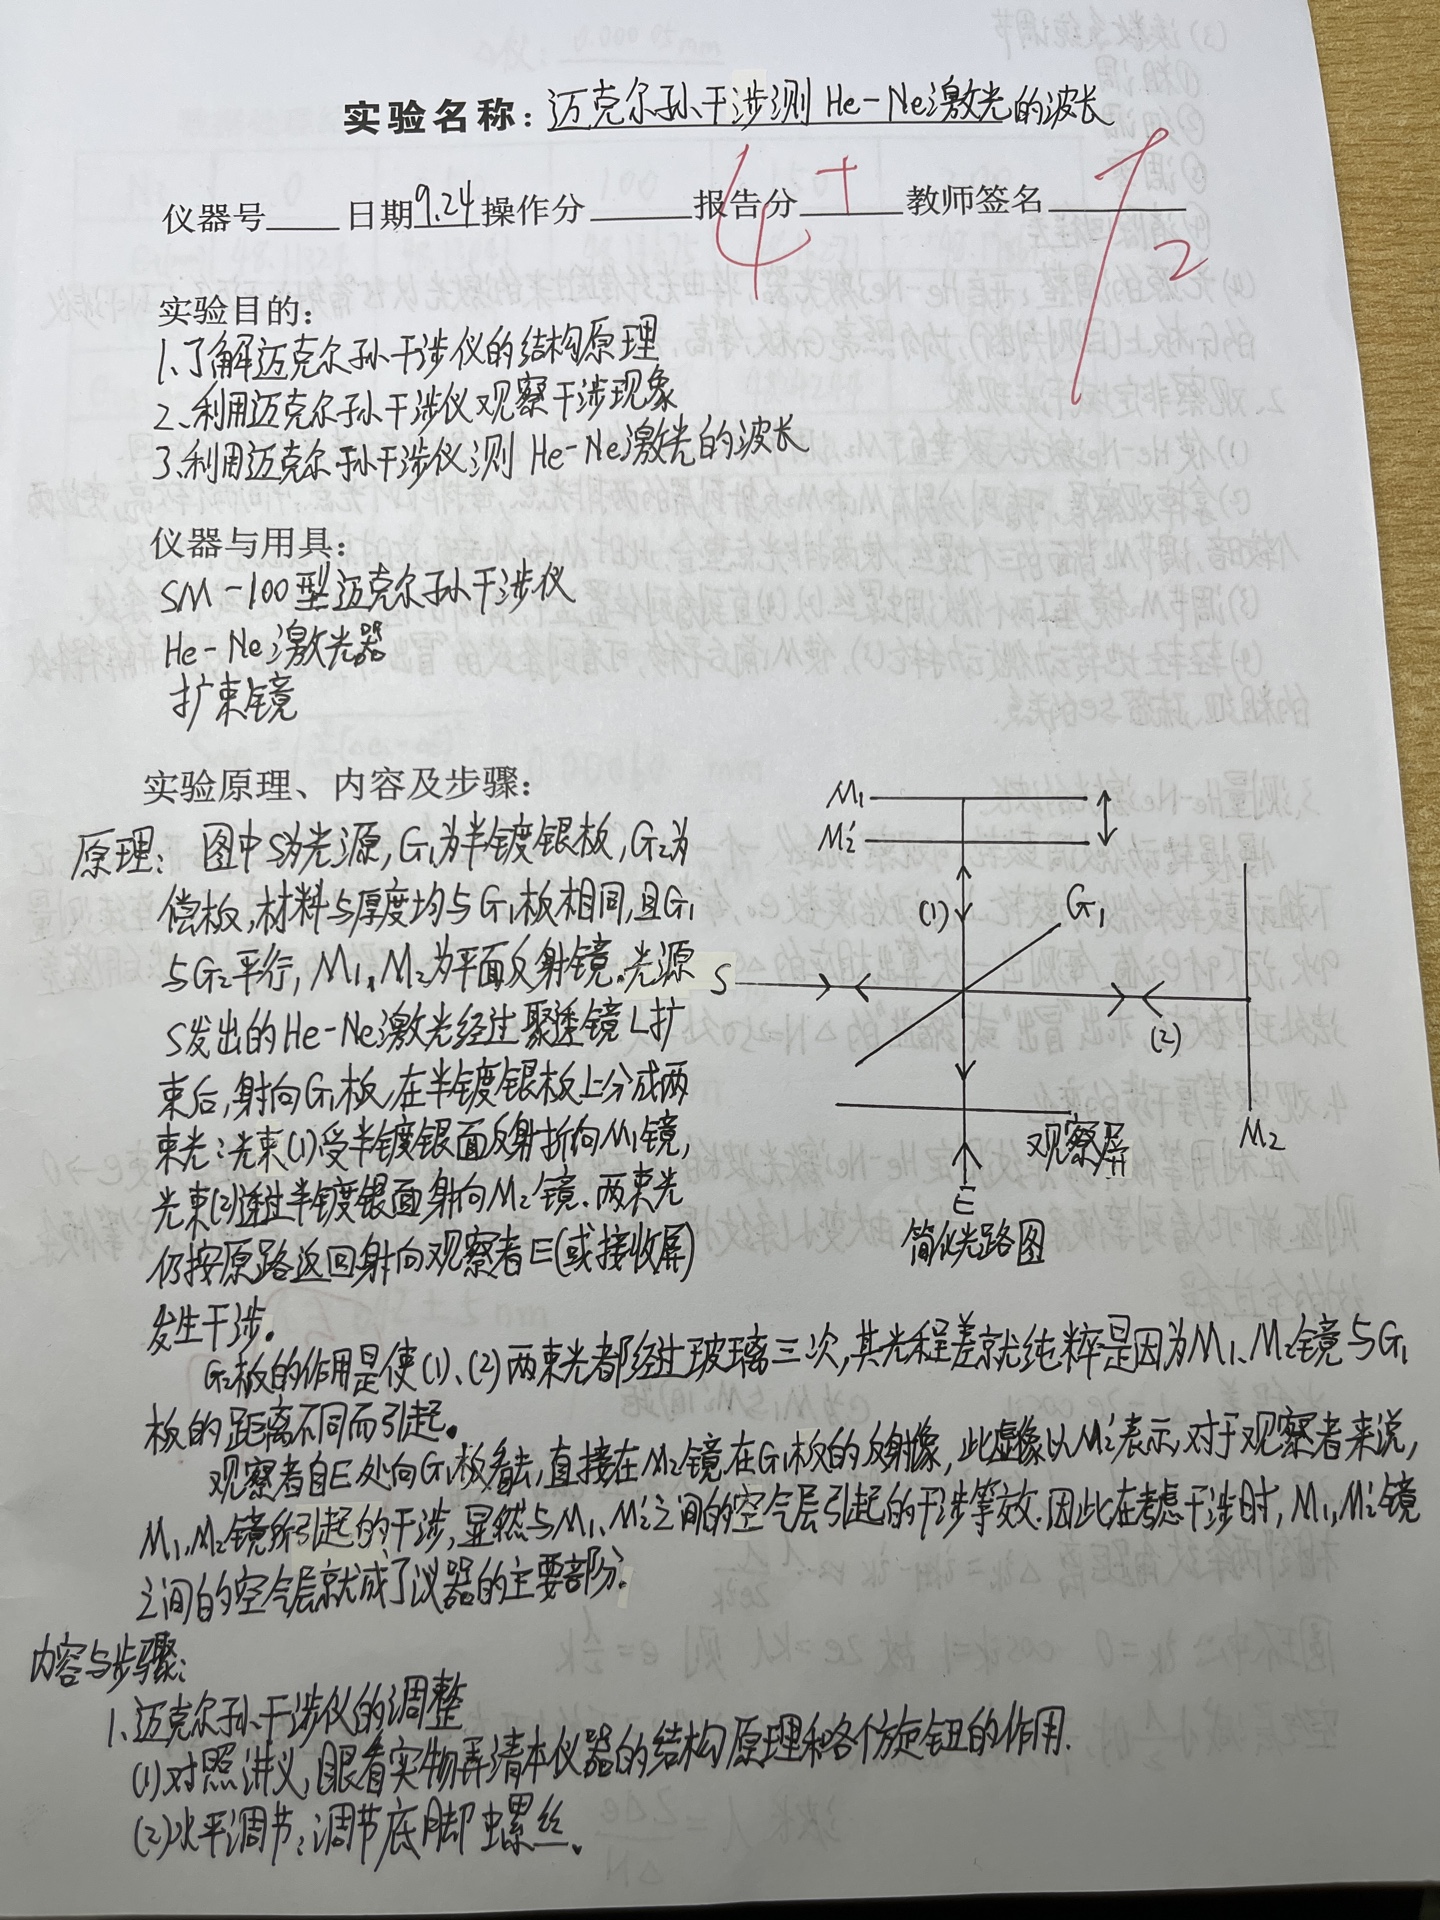 实验名称：迈克尔孙干涉测 He-Ne激光的波长
仪器号 日期9.24操作分 报告分 教师签名
4+
实验目的：
1、了解迈克尔孙干涉仪的结构原理
2、利用迈克尔孙干涉仪观察干涉现象
3、利用迈克尔孙干涉仪测 He-Ne激光的波长
仪器与用具：
SM-100型迈克尔孙干涉仪
He-Ne激光器
扩束镜
实验原理、内容及步骤：
原理：图中S为光源，G₁为半镀银板，G₂为
偿板，材料与厚度均与G₁板相同，且G₁
与G₂平行，M₁、M₂为平面反射镜。光源
S发出的He-Ne激光经过聚透镜L扩
束后，射向G₁板，在半镀银板上分成两
束光：光束(1)受半镀银面反射折向M₁镜，
光束(2)透过半镀银面射向M₂镜。两束光
仍按原路返回射向观察者E(或接收屏)
发生干涉。
M₁
M₂′
(1)
G₁
S
(2)
M₂
观察屏
E
简化光路图
G₂板的作用是使(1)、(2)两束光都经过玻璃三次，其光程差就纯粹是因为M₁、M₂镜与G₁
板的距离不同而引起。
观察者自E处向G₁板看去，直接在M₂镜在G₁板的反射像，此虚像以M₂′表示，对于观察者来说，
M₁、M₂镜所引起的干涉，显然与M₁、M₂′之间的空气层引起的干涉等效．因此在考虑干涉时，M₁，M₂′镜
之间的空气层就成了仪器的主要部分。
内容与步骤：
1、迈克尔孙干涉仪的调整
(1)对照讲义，眼看实物弄清本仪器的结构原理和各个旋钮的作用．
(2)水平调节：调节底脚螺丝。